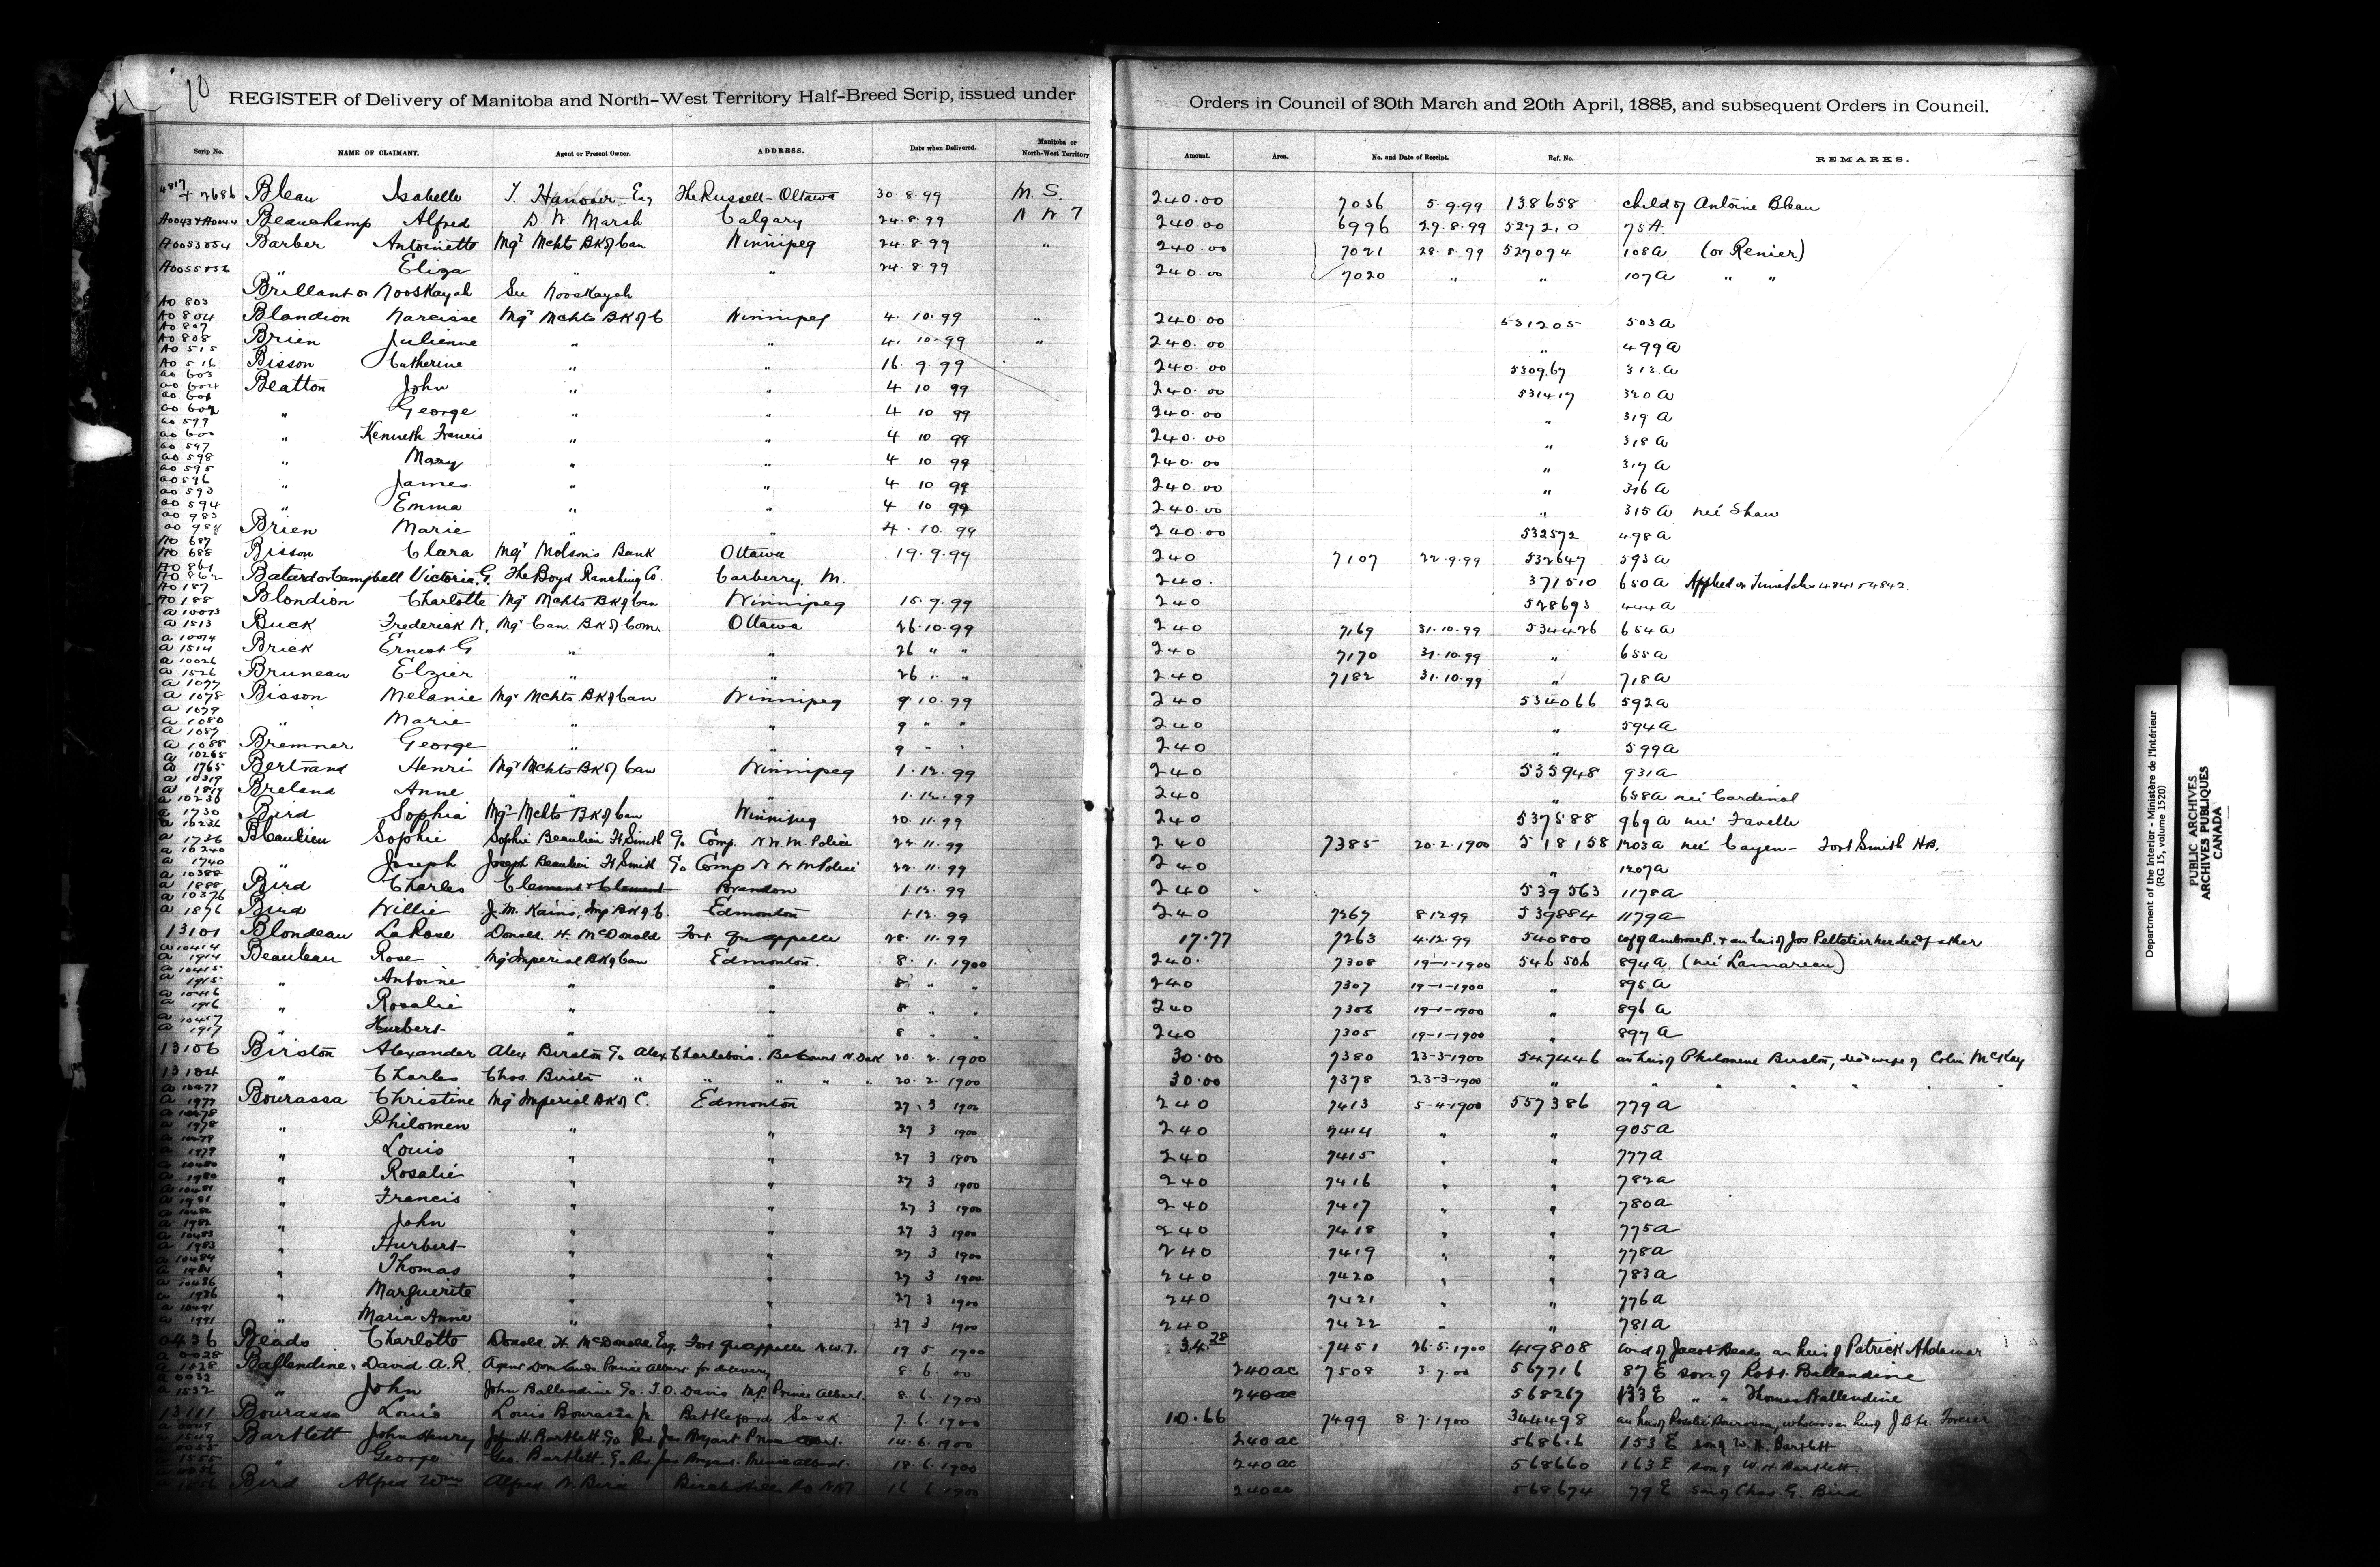 10
REGISTER of Delivery of Manitoba and North-West Territory Half-Breed Scrip, issued under Orders in Council of 30th March and 20th April, 1885, and subsequent Orders in Council.
Scrip No. NAME OF CLAIMANT. Agent or Present Owner. ADDRESS. Date when Delivered. Manitoba or North-West Territory Amount. Area. No. and Date of Receipt. Ref. No. REMARKS.
4817 + 2686 Bleau Isabelle The Russell - Ottawa 30.8.99 M. S. 240.00 7036 5.9.99 138658 child of Antoine Bleau
Beauchamp Alfred D. W. Marsh Calgary 24.8.99 N W T 240.00 6996 29.8.99 527210 75A
Barber Antoinette Mgr Mchts BK of Can Winnipeg 24.8.99 " 240.00 7021 28.8.99 527094 108a (or Renier)
" Eliza " " 24.8.99 240.00 7020 " " 107a " "
Brillant or Nooskayah See Nooskayah
A0 803 A0 804 Blandion Narcisse Mgr Mchts BK of C Winnipeg 4.10.99 " 240.00 531205 503a
A0 807 A0 808 Brien Julienne " " 4.10.99 " 240.00 " 499a
A0 515 A0 516 Bisson Catherine " " 16.9.99 240.00 530967 313a
a0 603 a0 604 Beatton John " " 4 10 99 240.00 531417 320a
a0 601 a0 602 " George " " 4 10 99 240.00 " 319a
a0 599 a0 600 " Kenneth Francis " " 4 10 99 240.00 " 318a
a0 597 a0 598 " Mary " " 4 10 99 240.00 " 317a
a0 595 a0 596 " James " " 4 10 99 240.00 " 316a
a0 593 a0 594 " Emma " " 4 10 99 240.00 " 315a neé Shaw
a0 983 a0 984 Brien Marie " " 4.10.99 240.00 532572 498a
A0 687 A0 688 Bisson Clara Mgr Molsons Bank Ottawa 19.9.99 240 7107 22.9.99 532647 593a
A0 861 A0 862 Batard or Campbell Victoria G. The Boyd Ranching Co. Carberry. M. 240. 371510 650a
A0 187 A0 188 Blondion Charlotte Mgr Mchts BK of Can Winnipeg 15.9.99 240 528693 444a
a 10013 a 1513 Buck Frederick N. Mgr Can. BK of Com. Ottawa 26.10.99 240 7169 31.10.99 534426 654a
a 10014 a 1514 Brick Ernest G " " 26 " " 240 7170 31.10.99 " 655a
a 10026 a 1526 Bruneau Elzier " " 26 " " 240 7182 31.10.99 " 718a
a 1077 a 1078 Bisson Melanie Mgr Mchts BK of Can Winnipeg 9.10.99 240 534066 592a
a 1079 a 1080 " Marie " " 9 " " 240 " 594a
a 1087 a 1088 Bremner George " " 9 " " 240 " 599a
a 10265 a 1765 Bertrand Henri Mgr Mchts BK of Can Winnipeg 1.12.99 240 535948 931a
a 10319 a 1819 Breland Anne " " 1.12.99 240 " 658a neé Cardinal
a 10230 a 1730 Bird Sophia Mgr Mchts BK of Can Winnipeg 20.11.99 240 537588 969a neé Favelle
a 1736 Beaulieu Sophie Sophie Beaulieu Ft Smith c/o Comp. N.W.M. Police 22.11.99 240 7385 20.2.1900 518158 1203a neé Cayen - Fort Smith
a 1740 " Joseph Joseph Beaulieu Ft Smith c/o Comp N W M Police 22.11.99 240 " 1207a
a 10388 a 1888 Bird Charles Clement & Clement Brandon 1.12.99 240 539563 1178a
a 10376 a 1876 Bird Willie J. M. Kains, Imp BK of C. Edmonton 1.12.99 240 7267 8.12.99 539884 1179a
13101 Blondeau LaRose Donald H. McDonald Fort Qu'appelle 28.11.99 17.77 7263 4.12.99 540800 w. of Ambrose B. & an heir of Jos. Pelletier her dec'd father
a 10414 a 1914 Beauleau Rose Mgr Imperial BK of Can Edmonton. 8.1.1900 240. 7308 19-1-1900 546506 894a (neé Lamareau)
a 10415 a 1915 " Antoine " " 8 " " 240 7307 19-1-1900 " 895a
a 10416 a 1916 " Rosalie " " 8 " " 240 7306 19-1-1900 " 896a
a 10417 a 1917 " Hurbert " " 8 " " 240 7305 19-1-1900 " 897a
13106 Birston Alexander Alex Birston c/o Alex Charlebois. N. Dak 20.2.1900 30.00 7380 23-3-1900 547446 an heir of Philomene Birston, dec'd wife of Colin McKay
13104 " Charles Chas. Birston " " " " " 20.2.1900 30.00 7378 23-3-1900 " " " " " "
a 10477 a 1977 Bourassa Christine Mgr Imperial BK of C. Edmonton 27.3 1900 240 7413 5-4-1900 557386 779a
a 10478 a 1978 " Philomen " " 27 3 1900 240 7414 " " 905a
a 10479 a 1979 " Louis " " 27 3 1900 240 7415 " " 777a
a 10480 a 1980 " Rosalie " " 27 3 1900 240 7416 " " 782a
a 10481 a 1981 " Francis " " 27 3 1900 240 7417 " " 780a
a 10482 a 1982 " John " " 27 3 1900 240 7418 " " 775a
a 10483 a 1983 " Hurbert " " 27 3 1900 240 7419 " " 778a
a 10484 a 1984 " Thomas " " 27 3 1900 240 7420 " " 783a
a 10486 a 1986 " Marguerite " " 27 3 1900 240 7421 " " 776a
a 10491 a 1991 " Maria Anne " " 27 3 1900 240 7422 " " 781a
0436 Beads Charlotte Donald H. McDonald Esq. Fort Qu'appelle N.W.T. 19 5 1900 34.28 7451 26.5.1900 419808 wid of Jacob Beads an heir of Patrick
Ballendine David A.R. Agent Dom Lands. Prince Albert for delivery 8.6.00 240 ac 7508 3.7.00 567716 87 E son of Robt. Ballendine
a 0032 a 1532 " John John Ballendine c/o T.O. Davis M.P. Prince Albert. 8.6.1900 240 ac 568267 133 E " " Thomas Ballendine
13111 Bourassa Louis Louis Bourassa Jr. Battleford Sask 7.6.1900 10.66 7499 8.7.1900 344498
Bartlett John Henry John H. Bartlett c/o Rev. Jas Bryant Prince Albert. 14.6.1900 240 ac 153 E son of W. H. Bartlett
" George Geo. Bartlett. c/o Rev Jas Bryant. Prince Albert. 18.6.1900 240 ac 568660 163 E son of W. H. Bartlett
Bird Alfred Wm Alfred W. Bird Birch Hills PO NWT 16 6 1900 240 ac 568674 79 E son of Chas. G. Bird
Department of the Interior - Ministère de l'Intérieur
(RG 15, volume 1520)
PUBLIC ARCHIVES
ARCHIVES PUBLIQUES
CANADA